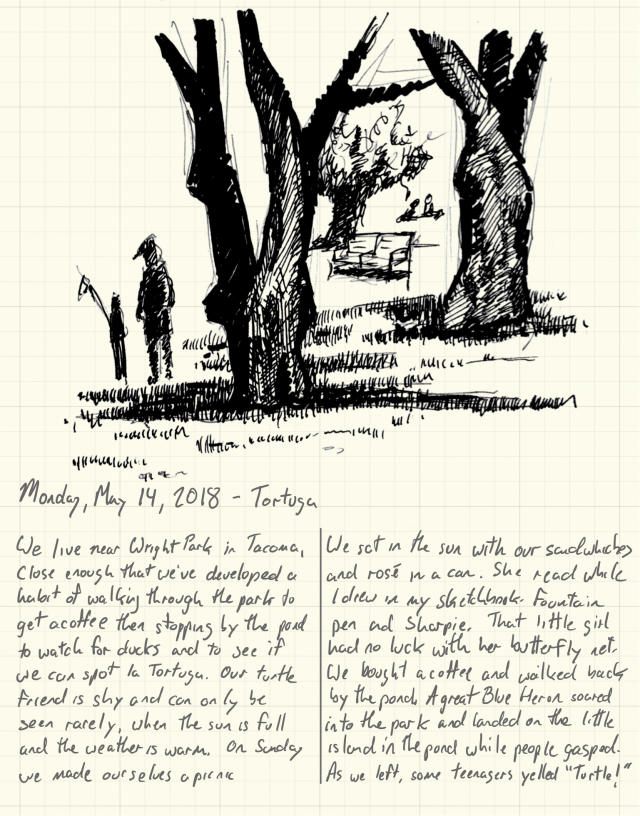 Monday, May 14, 2018 - Tortuga
We live near Wright Park in Tacoma,
Close enough that we've developed a
habit of walking through the park to
get a coffee then stopping by the pond
to watch for ducks and to see if
we can spot la Tortuga. Our turtle
friend is shy and can only be
seen rarely, when the sun is full
and the weather is warm. On Sunday
we made ourselves a picnic
We sat in the sun with our sandwiches
and rosé in a can. She read while
I drew in my sketchbook. Fountain
pen and Sharpie. That little girl
had no luck with her butterfly net.
We bought a coffee and walked back
by the pond. A great Blue Heron soared
into the park and landed on the little
island in the pond while people gasped.
As we left, some teenagers yelled "Turtle!"